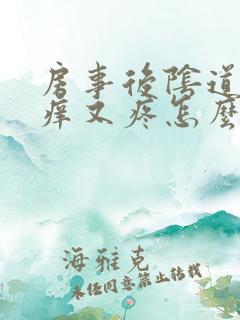 房事後陰道
痒又疼怎麼
海雅克
未经同意禁止转载